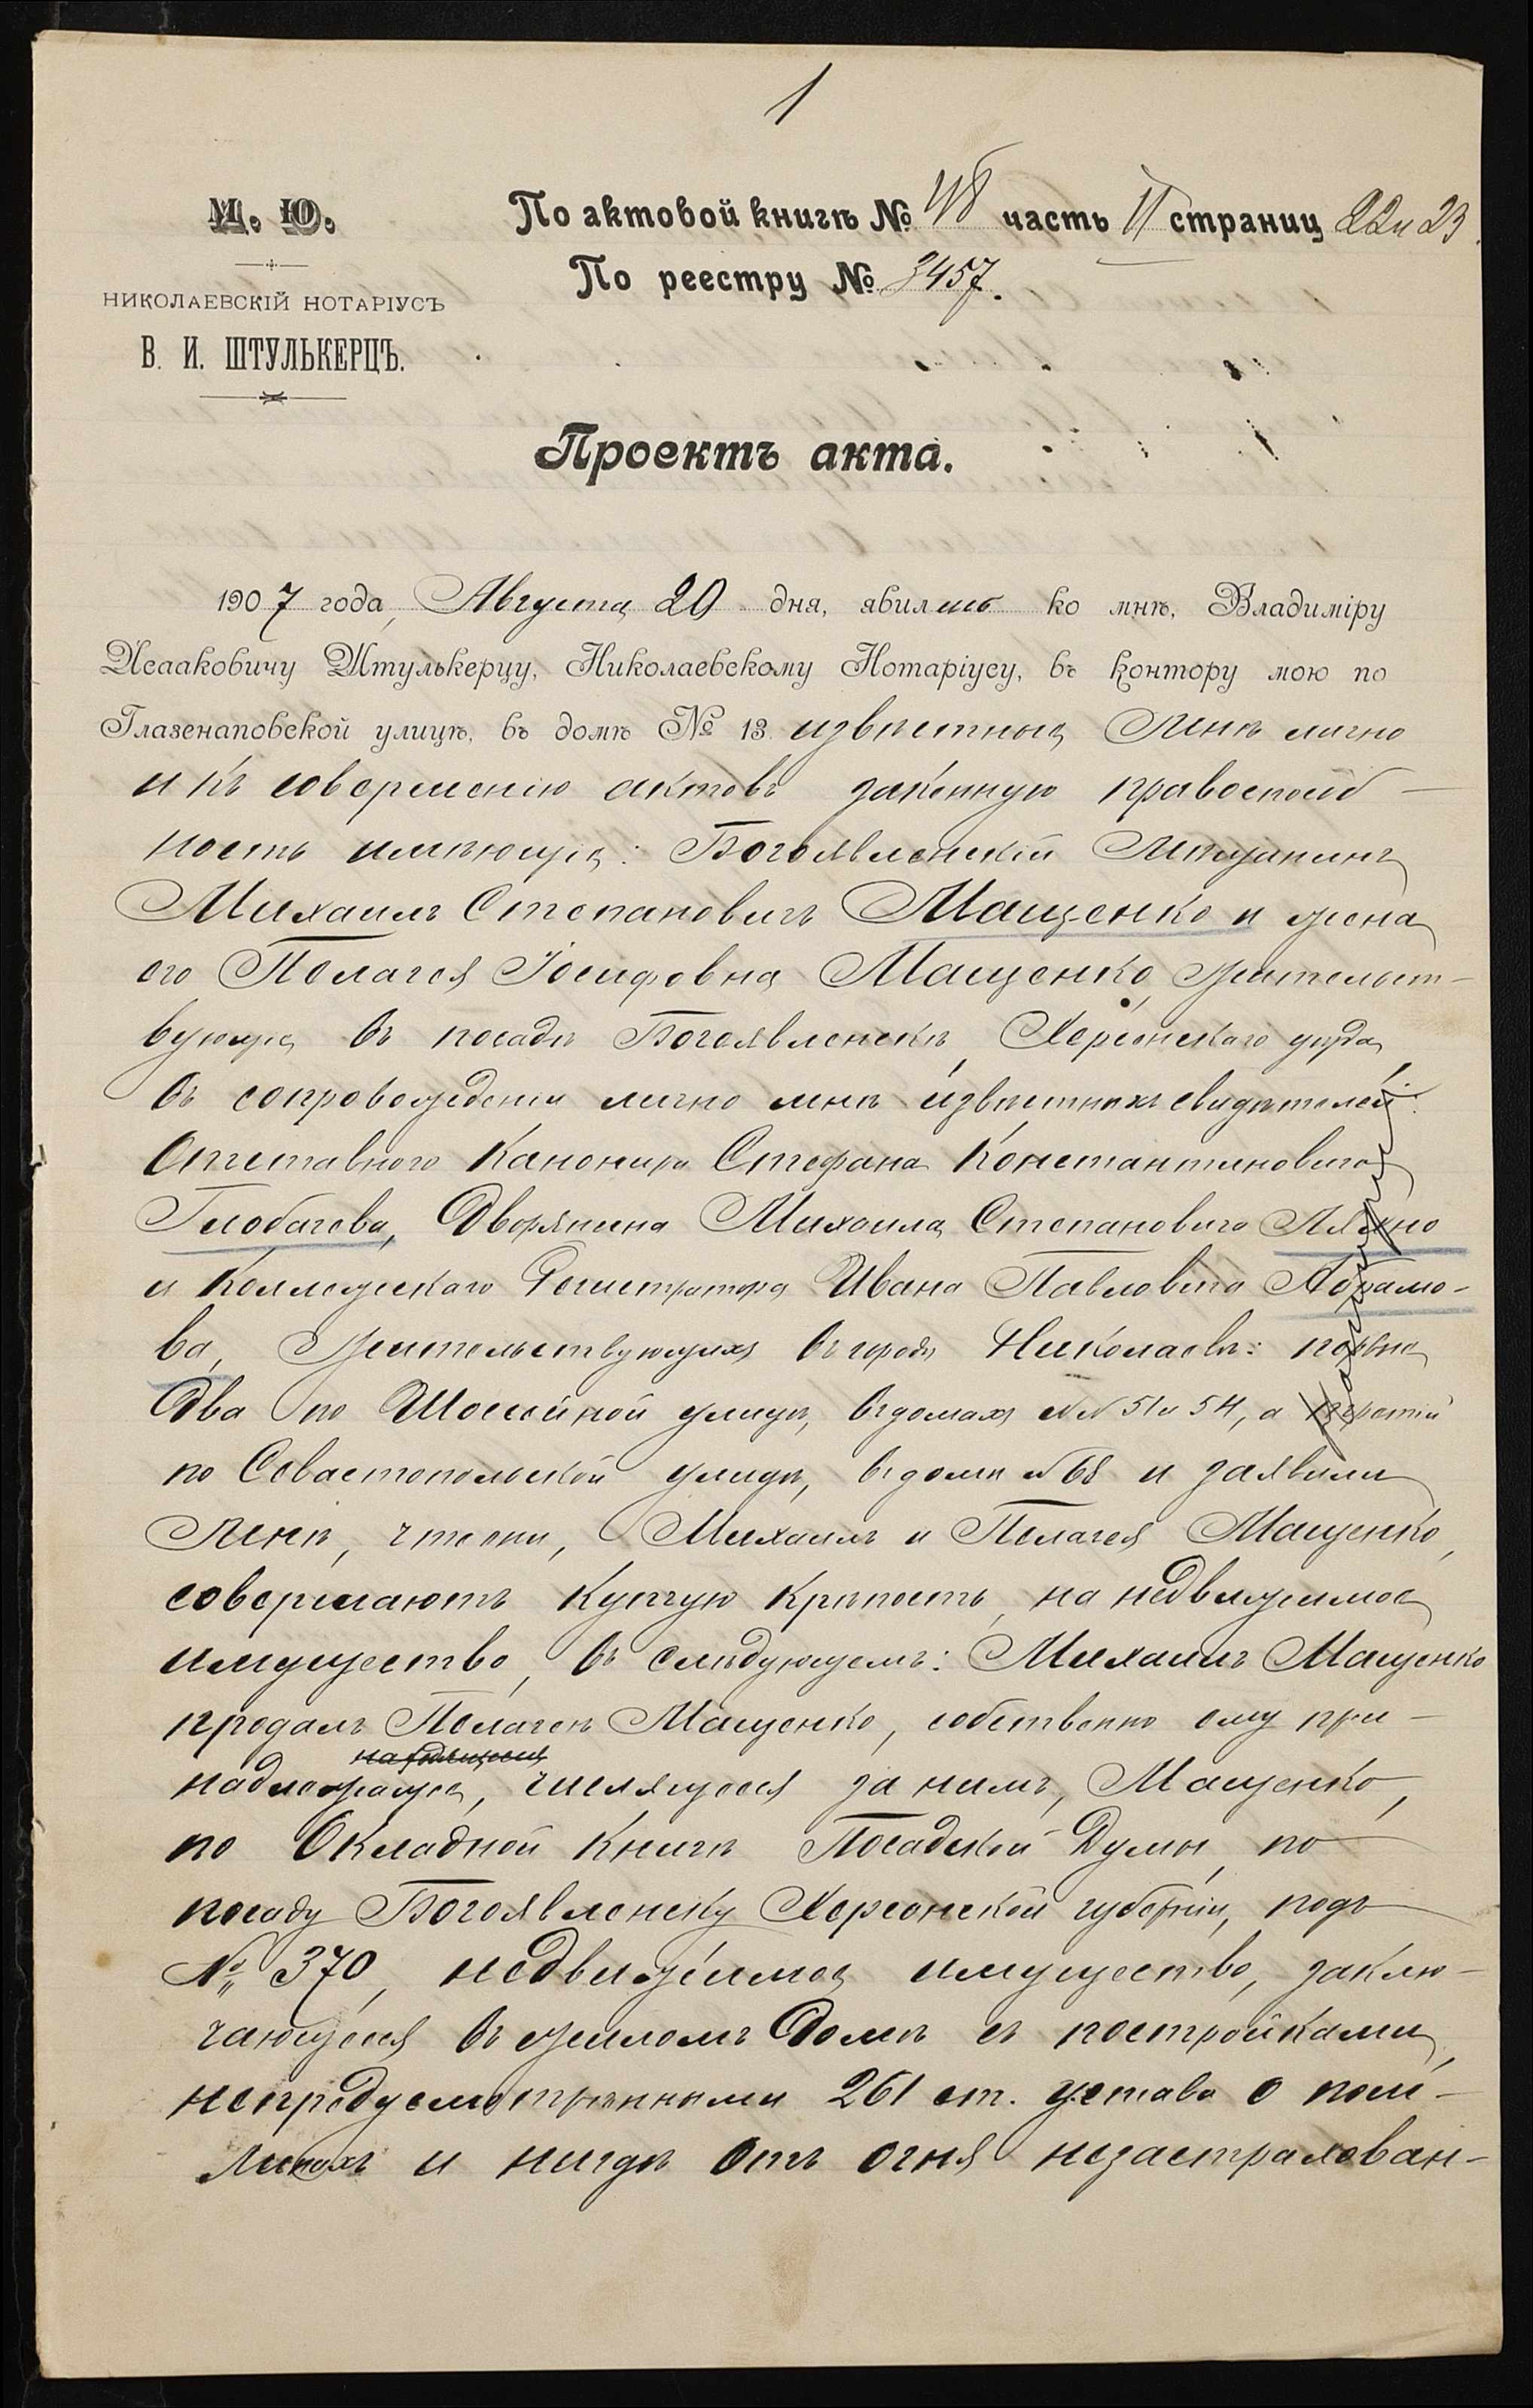 1
М. Ю.
НИКОЛАЕВСКІЙ НОТАРІУСЪ
В. И. ШТУЛЬКЕРЦЪ.
По актовой книгѣ № часть II страниц 22 и 23.
По реестру № 3457.
Проектъ акта.
1907 года, Августа 20 дня, явились ко мнѣ, Владиміру
Исааковичу Штулькерцу, Николаевскому Нотаріусу, въ контору мою по
Глазенаповской улицѣ, въ домѣ № 13 извѣстные мнѣ лично
и къ совершенію актовъ законную правоспособ-
ность имѣющіе: Богоявленскій Мѣщанинъ
Михаилъ Степановичъ Мащенко и жена
его Пелагея Іосифовна Мащенко, жительст-
вующіе въ посадѣ Богоявленскѣ, Херсонскаго уѣзда,
въ сопровожденіи лично мнѣ извѣстныхъ свидѣтелей:
Отставного Канонира Стефана Константиновича
Глобачева, Дворянина Михаила Степановича Ляхно
и Коллежскаго Регистратора Ивана Павловича Абрамо-
ва, жительствующихъ въ городѣ Николаевѣ: первые
два по Шоссейной улицѣ, въ домахъ №№ 51 и 54, а третій
по Севастопольской улицѣ, въ домѣ № 68 и заявили
мнѣ, что они, Михаилъ и Пелагея Мащенко,
совершаютъ купчую крѣпость, на недвижимое
имущество, въ слѣдующемъ: Михаилъ Мащенко
продалъ Пелагеѣ Мащенко, собственно ему при-
надлежащее, числящееся за нимъ, Мащенко,
по Окладной книгѣ Посадской Думы, по
посаду Богоявленску Херсонской губерніи, подъ
№ 370, недвижимое имущество, заклю-
чающееся въ жиломъ домѣ съ постройками,
непредусмотрѣнными 261 ст. устава о пош-
линахъ и нигдѣ отъ огня незастрахован-